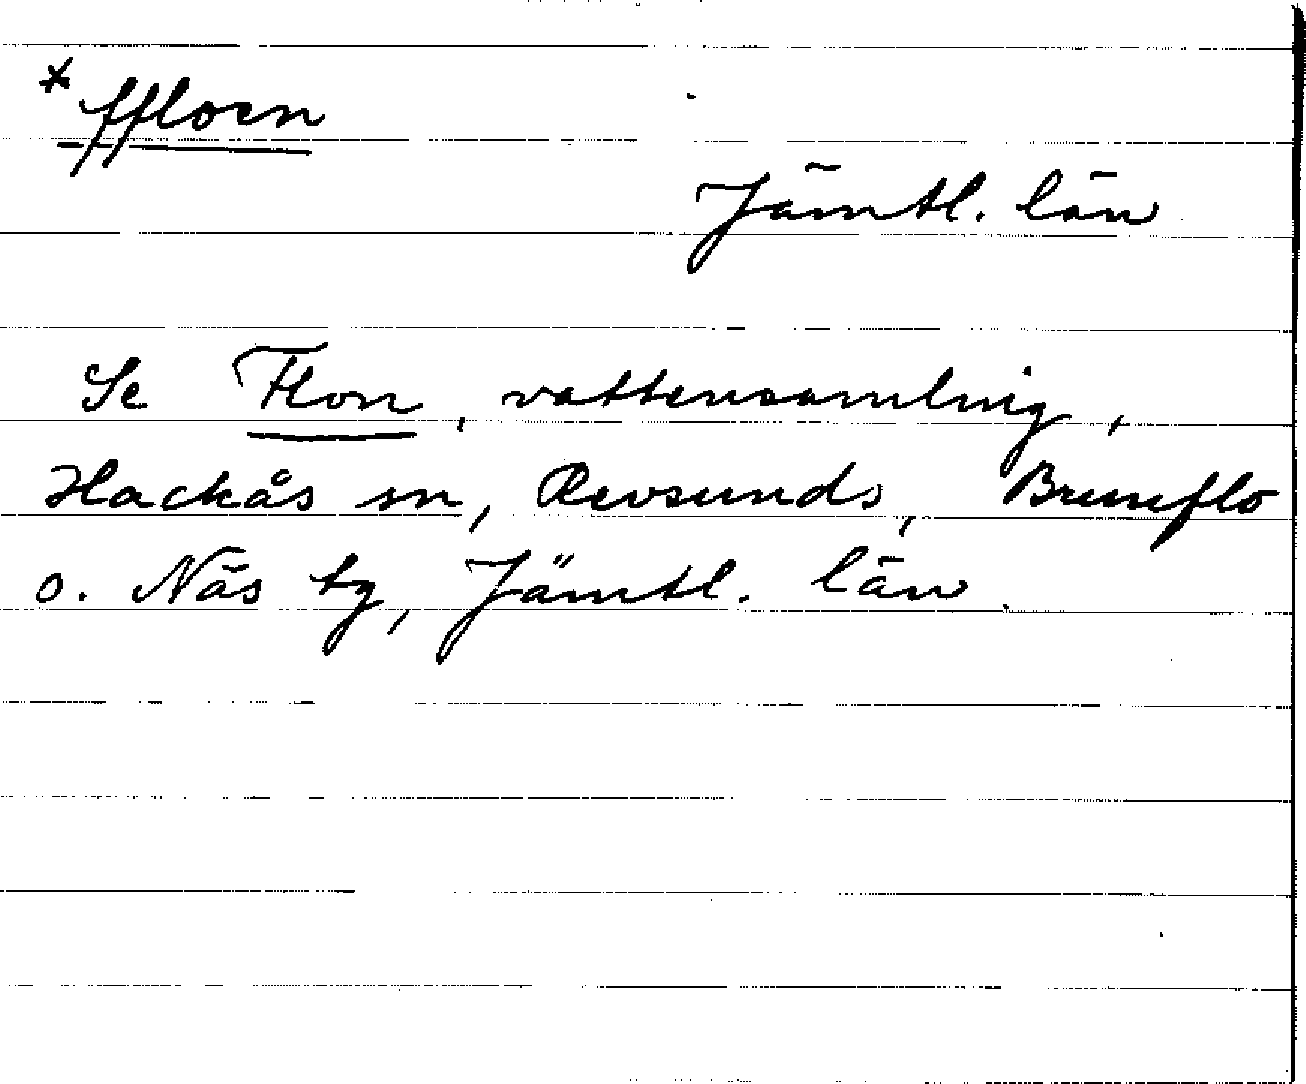 * ffloen
Jämtl. län
Se Flon, vattensamling,
Hackås sn, Revsunds, Brunflo
o. Näs tg, Jämtl. län